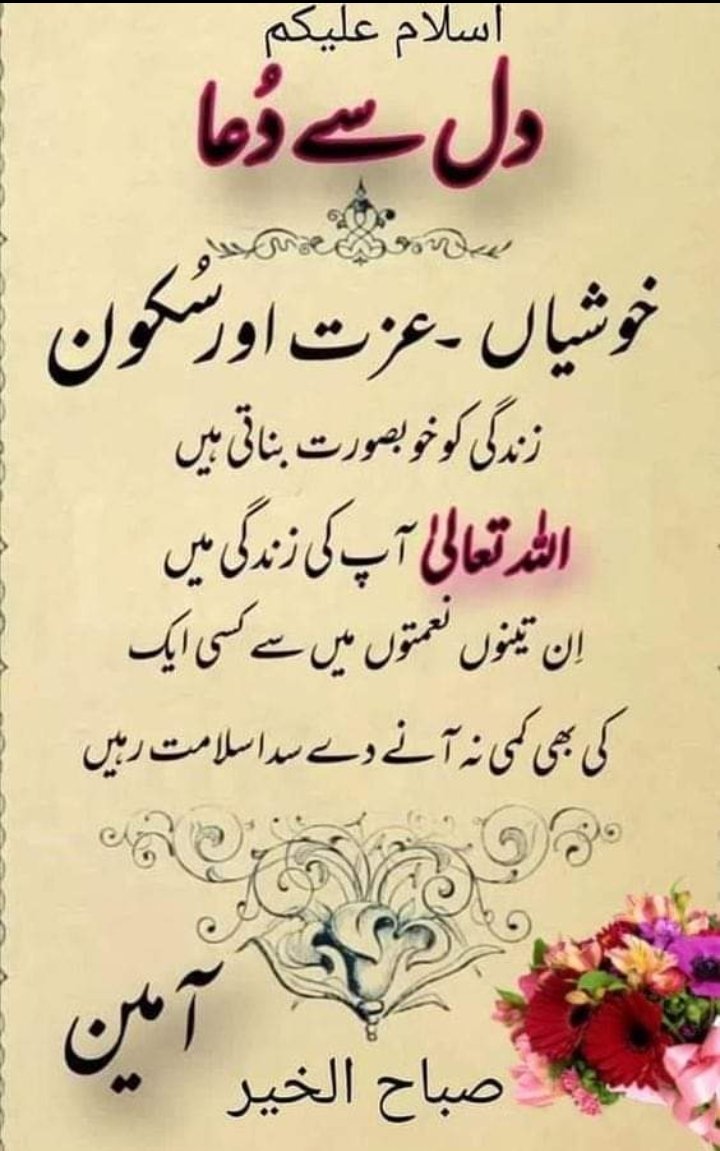 اسلام علیکم
دل سے دُعا
خوشیاں ۔عزت اور سُکون
زندگی کو خوبصورت بناتی ہیں
اللہ تعالیٰ آپ کی زندگی میں
اِن تینوں نعمتوں میں سے کسی ایک
کی بھی کمی نہ آنے دے سدا سلامت رہیں
آمین
صباح الخیر